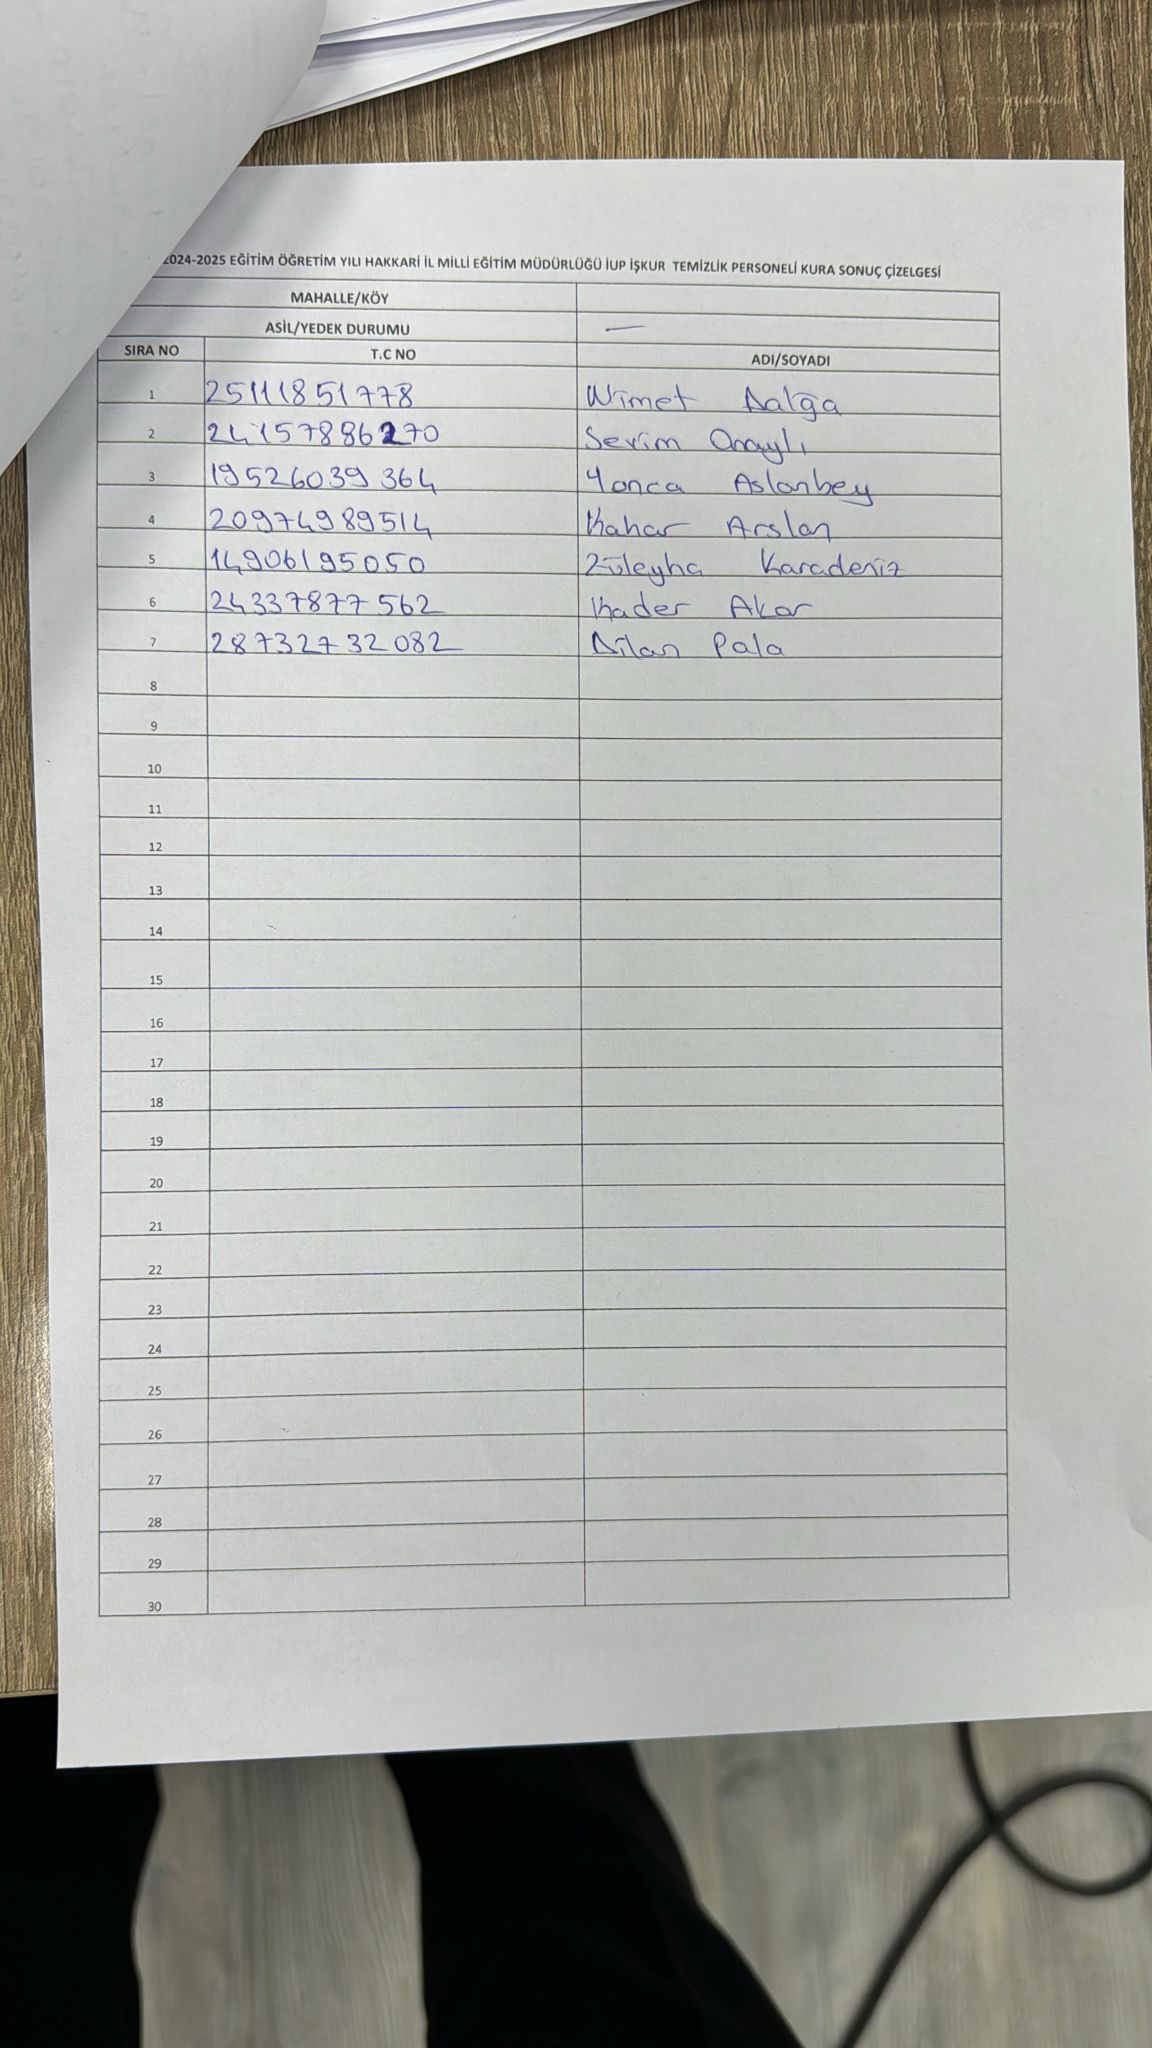 2024-2025 EĞİTİM ÖĞRETİM YILI HAKKARİ İL MİLLİ EĞİTİM MÜDÜRLÜĞÜ İUP İŞKUR TEMİZLİK PERSONELİ KURA SONUÇ ÇİZELGESİ
MAHALLE/KÖY
ASİL/YEDEK DURUMU —
SIRA NO T.C NO ADI/SOYADI
1 25111851778 Nimet Dalğa
2 24157886270 Sevim Onaylı
3 19526039364 Yonca Aslanbey
4 20974989514 Kahar Arslan
5 14906195050 Züleyha Karadeniz
6 24337877562 Kader Akar
7 28732732082 Dilan Pala
8
9
10
11
12
13
14
15
16
17
18
19
20
21
22
23
24
25
26
27
28
29
30